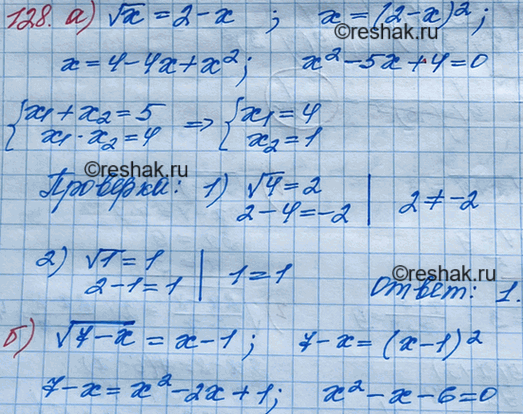 128. а) √x = 2 - x ; x = (2 - x)² ;
x = 4 - 4x + x² ; x² - 5x + 4 = 0
{x₁ + x₂ = 5 ⇒ {x₁ = 4
x₁ · x₂ = 4 x₂ = 1
©reshak.ru
Проверка: 1) √4 = 2 | 2 ≠ -2
2 - 4 = -2
©reshak.ru
2) √1 = 1 | 1 = 1
2 - 1 = 1 Ответ: 1.
б) √(7-x) = x - 1 ; 7 - x = (x - 1)²
7 - x = x² - 2x + 1 ; x² - x - 6 = 0